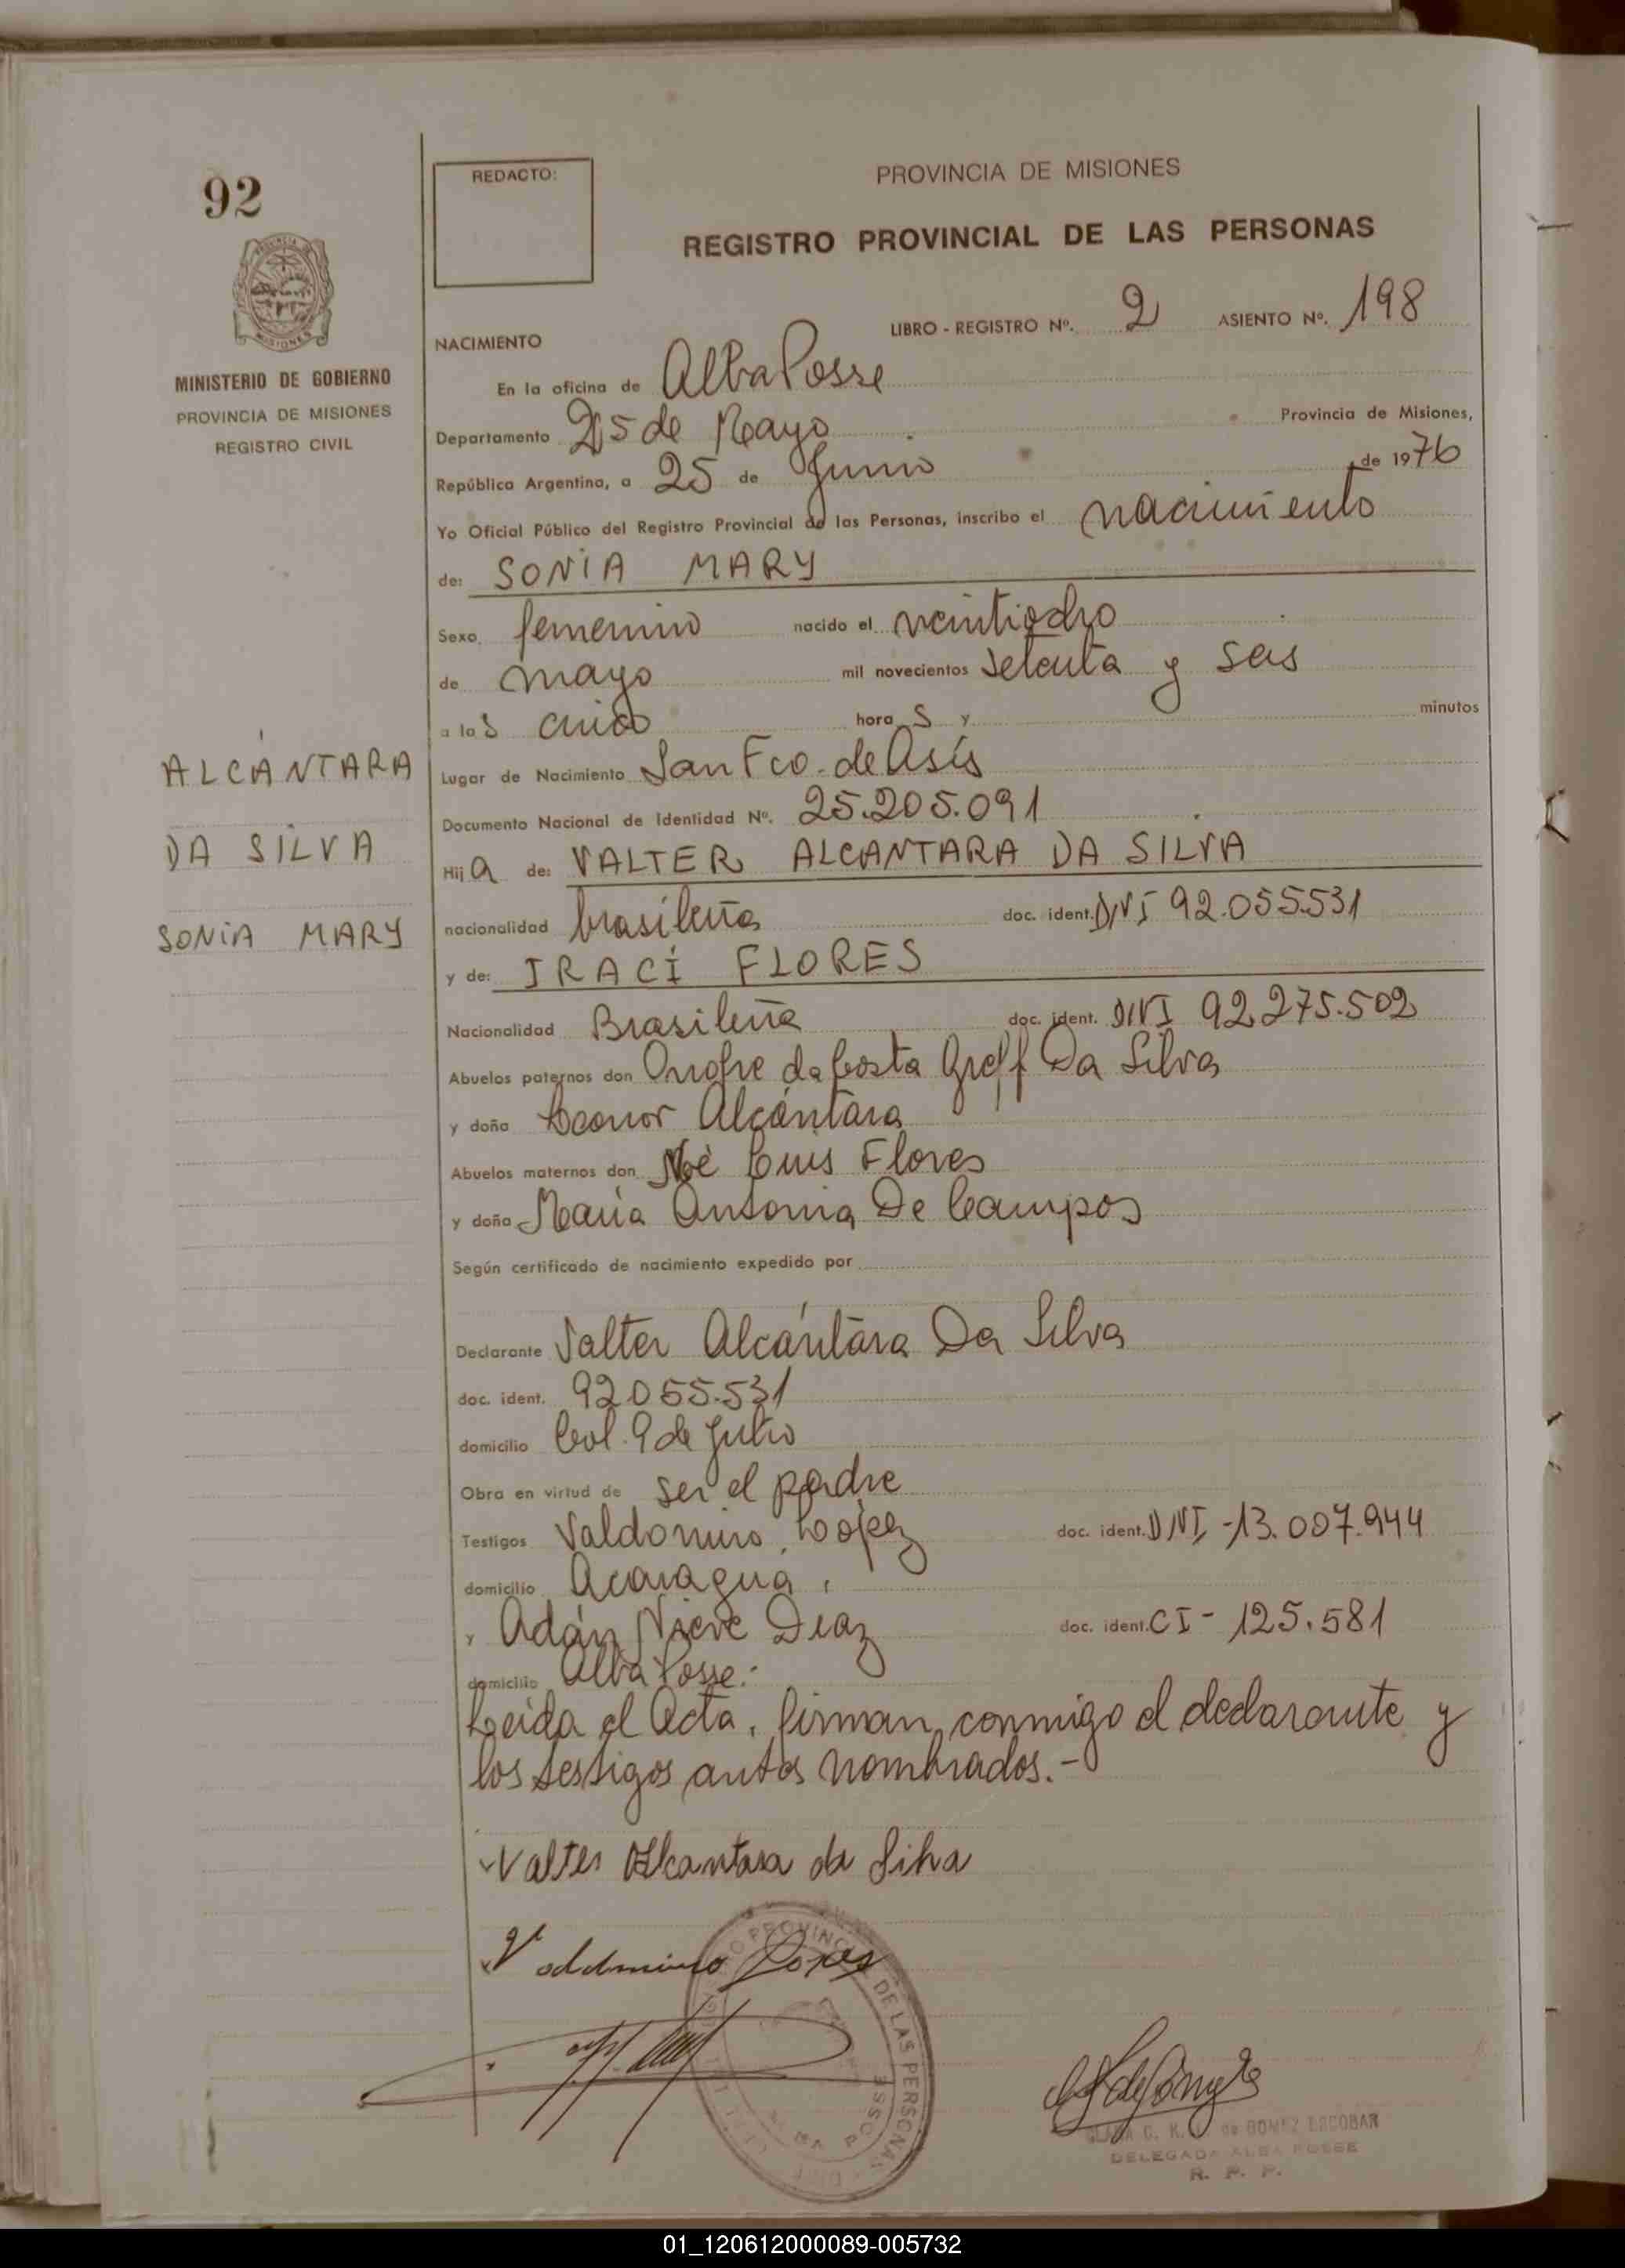 92
REDACTO:
PROVINCIA DE MISIONES
REGISTRO PROVINCIAL DE LAS PERSONAS
MISIONES
MINISTERIO DE GOBIERNO
PROVINCIA DE MISIONES
REGISTRO CIVIL
LIBRO - REGISTRO Nº. 2 ASIENTO Nº. 198
NACIMIENTO
En la oficina de Alba Posse
Departamento 25 de Mayo Provincia de Misiones,
República Argentina, a 25 de Junio de 1976
Yo Oficial Público del Registro Provincial de las Personas, inscribo el nacimiento
de: SONIA MARY
Sexo femenino nacido el veintiocho
de mayo mil novecientos setenta y seis
a las cinco horas y minutos
ALCÁNTARA
DA SILVA
SONIA MARY
Lugar de Nacimiento San Fco. de Asís
Documento Nacional de Identidad Nº. 25.205.091
Hija de: VALTER ALCANTARA DA SILVA
nacionalidad brasileña doc. ident. DNI 92.055.531
y de: IRACÍ FLORES
Nacionalidad Brasileña doc. ident. DNI 92.275.502
Abuelos paternos don Onofre da Costa Greff Da Silva
y doña Leonor Alcántara
Abuelos maternos don Noé Luis Flores
y doña María Antonia De Campos
Según certificado de nacimiento expedido por
Declarante Valter Alcántara Da Silva
doc. ident. 92055.531
domicilio Col. 9 de Julio
Obra en virtud de ser el padre
Testigos Valdomiro López doc. ident. DNI -13.007.944
domicilio Acaragua,
y Adán Nieve Diaz doc. ident. CI - 125.581
domicilio Alba Posse.-
Leída el Acta, firman, conmigo el declarante y
los testigos antes nombrados.-
Valter Alcantara da Silva
Valdomiro Lopes
PROVINCIAL DE LAS PERSONAS
ALBA POSSE
de GOMEZ ESCOBAR
DELEGADA ALBA POSSE
R. P. P.
01_120612000089-005732